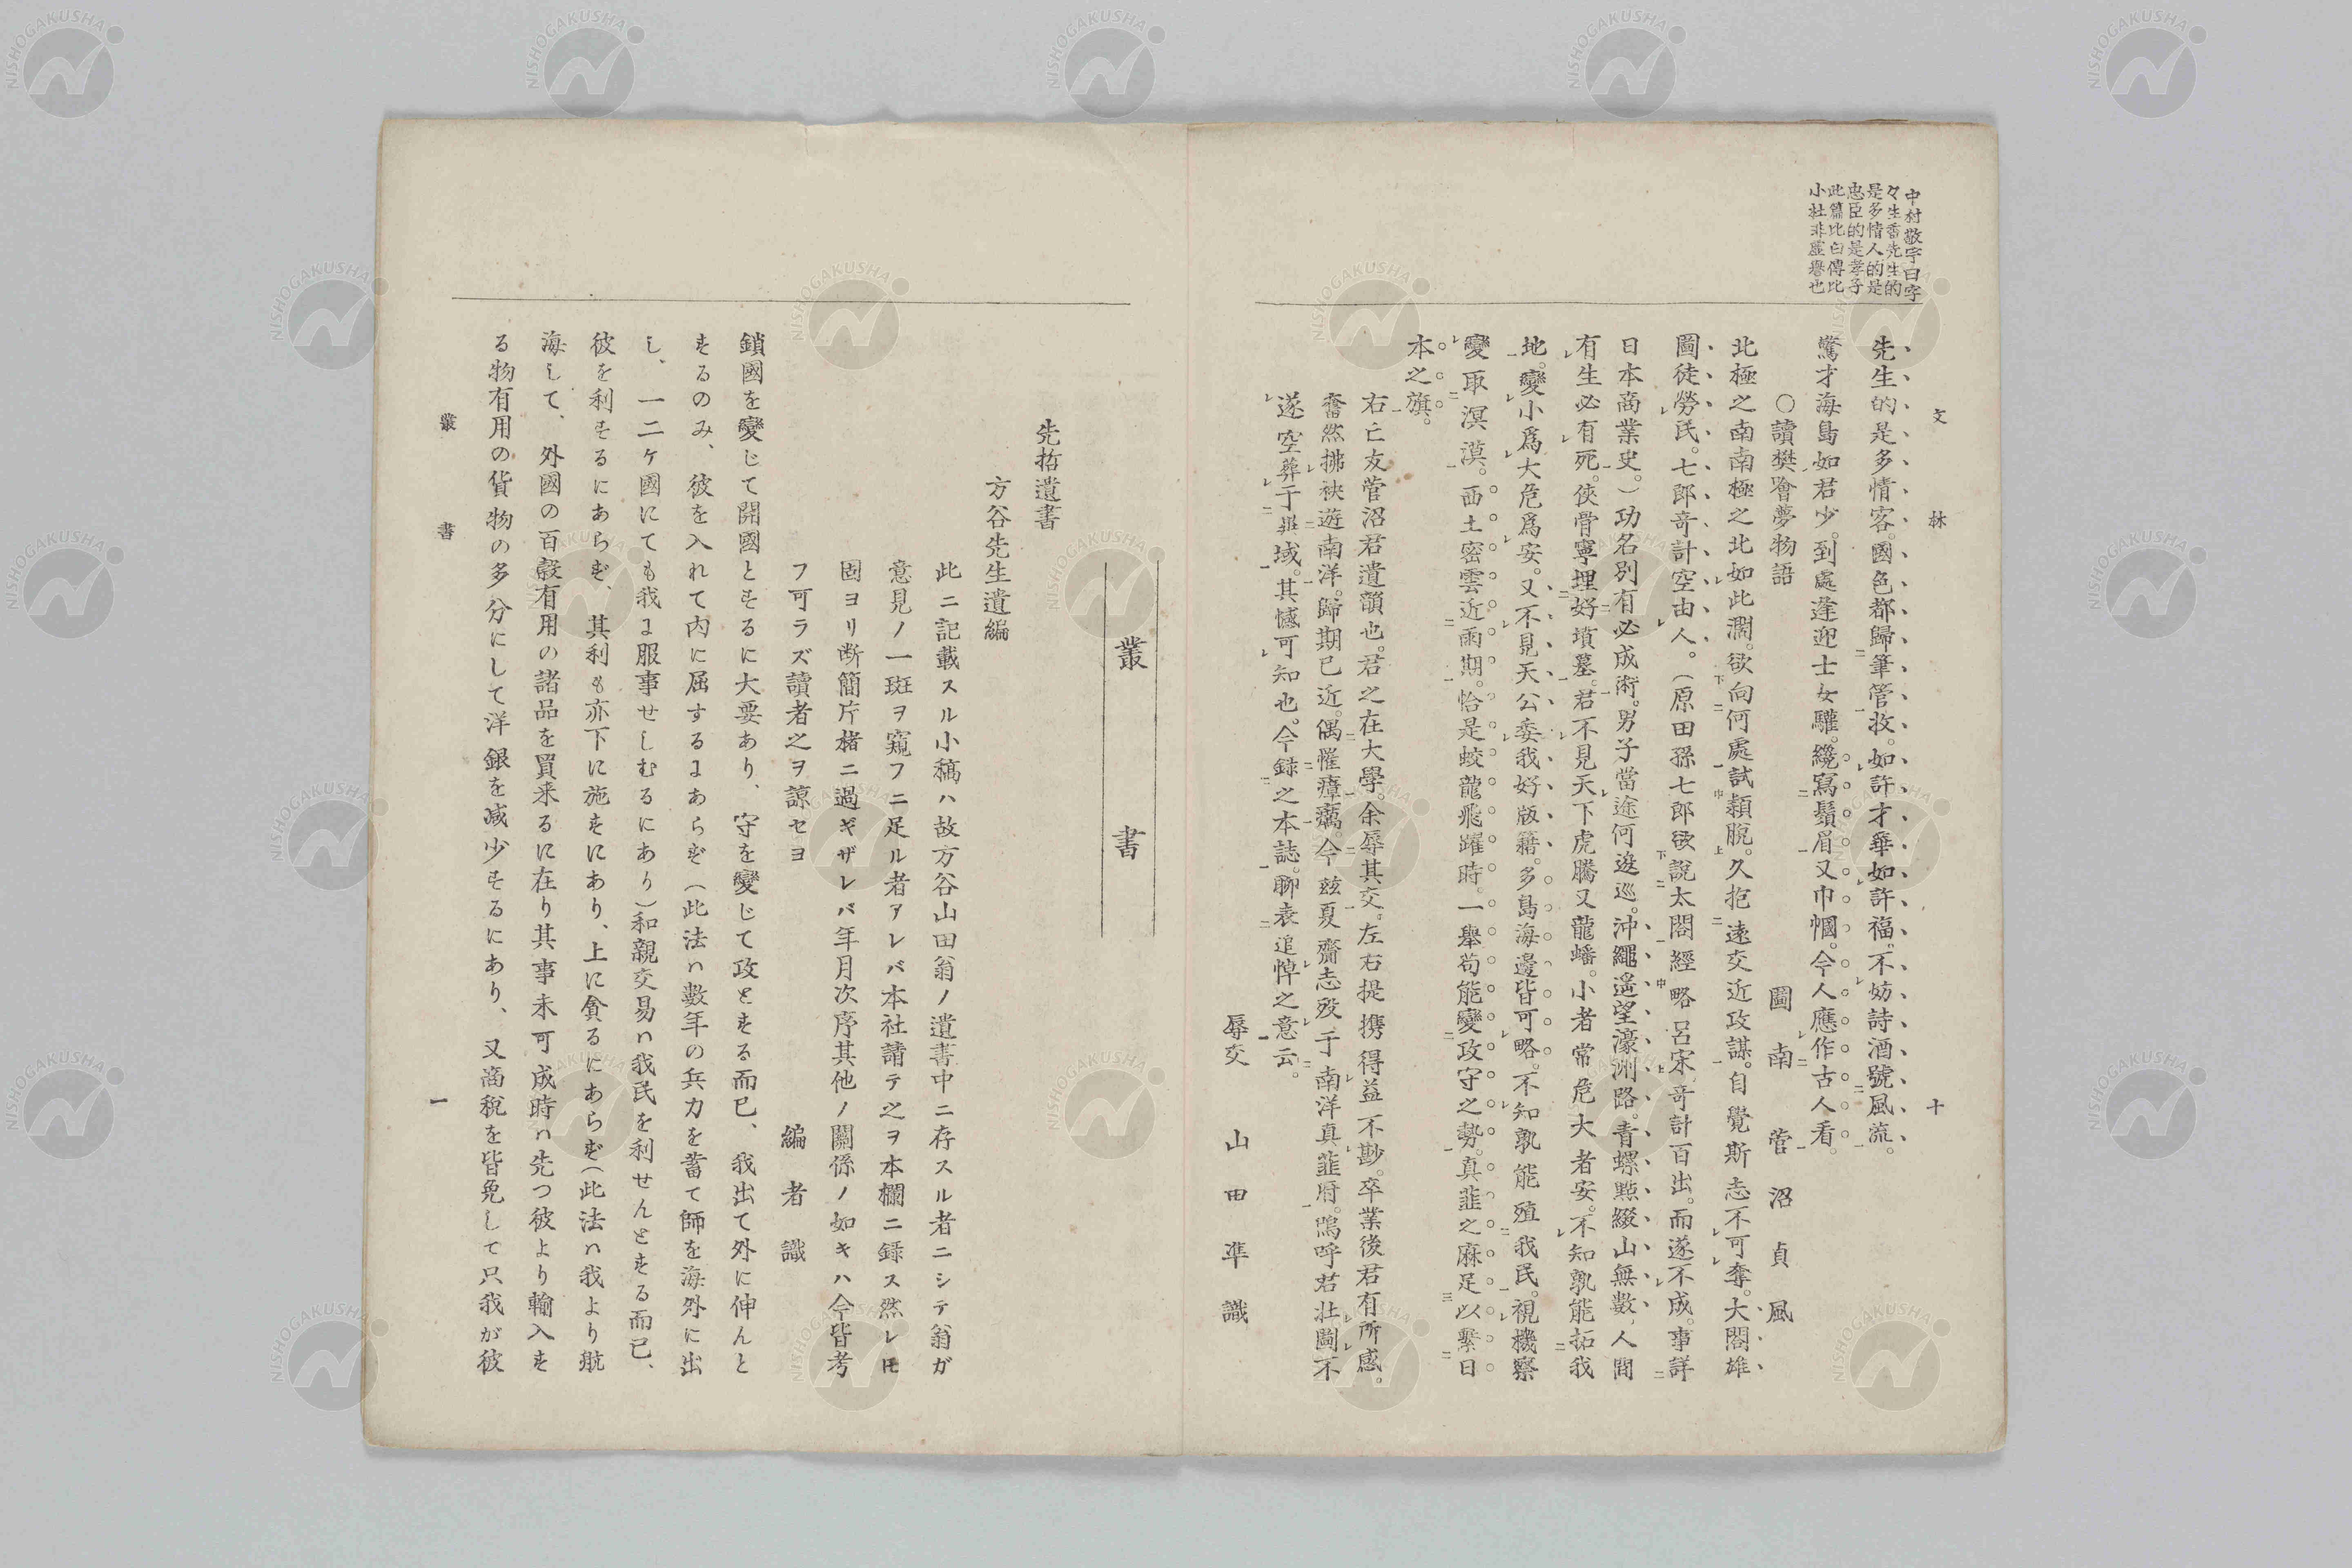 文林 十
中村敬宇曰字
々生香先生的
是多情人的是
忠臣的是孝子
此篇比白傳比
小杜非虛譽也
先生的是多情客。國色都歸筆管收。如許才華如許福。不妨詩酒號風流。
驚才海島如君少。到處逢迎士女驩。纔寫鬚眉又巾幗。今人應作古人看。
〇讀樊噲夢物語 圖南 菅沼貞風
北極之南南極之北如此濶。欲向何處試穎脫。久抱遠交近攻謀。自覺斯志不可奪。大閤雄
圖徒勞民。七郎奇計空由人。(原田孫七郎欲說太閤經略呂宋奇計百出。而遂不成。事詳
日本商業史。)功名別有必成術。男子當途何逡巡。沖繩遙望濠洲路。青螺點綴山無數、人間
有生必有死。俠骨寧埋好墳墓。君不見天下虎騰又龍蟠。小者常危大者安。不知孰能拓我
地。變小爲大危爲安。又不見天公委我好版籍。多島海邊皆可略。不知孰能殖我民。視機察
變取溟漠。西土密雲近雨期。恰是蛟龍飛躍時。一舉苟能變攻守之勢。真韮之麻足以繫日
本之旗。
右亡友菅沼君遺韻也。君之在大學。余辱其交。左右提携得益不尠。卒業後君有所感。
奮然拂袂遊南洋。歸期已近。偶罹瘴癘。今玆夏齎志歿于南洋真韮府。嗚呼若壯圖不
遂空葬于異域。其憾可知也。今錄之本誌。聊表追悼之意云。
辱交 山田準識
叢書
先哲遺書
方谷先生遺編
此ニ記載スル小稿ハ故方谷山田翁ノ遺書中ニ存スル者ニシテ翁ガ
意見ノ一斑ヲ窺フニ足ル者アレバ本社請テ之ヲ本欄ニ錄ス然レ𪜈
固ヨリ断簡片楮ニ過ギザレバ年月次序其他ノ關係ノ如キハ今皆考
フ可ラズ讀者之ヲ諒セヨ
編者識
鎖國を變じて開國とするに大要あり、守を變じて攻とする而已、我出て外に伸んと
するのみ、彼を入れて内に屈するにあらず(此法ハ數年の兵力を蓄て師を海外に出
し、一二ヶ國にても我に服事せしむるにあり)和親交易ハ我民を利せんとする而已、
彼を利するにあらず、其利も亦下に施すにあり、上に貪るにあらず(此法ハ我より航
海して、外國の百穀有用の諸品を買来るに在り其事未可成時ハ先つ彼より輸入す
る物有用の貨物の多分にして洋銀を減少するにあり、又商税を皆免して只我が彼
叢書 一